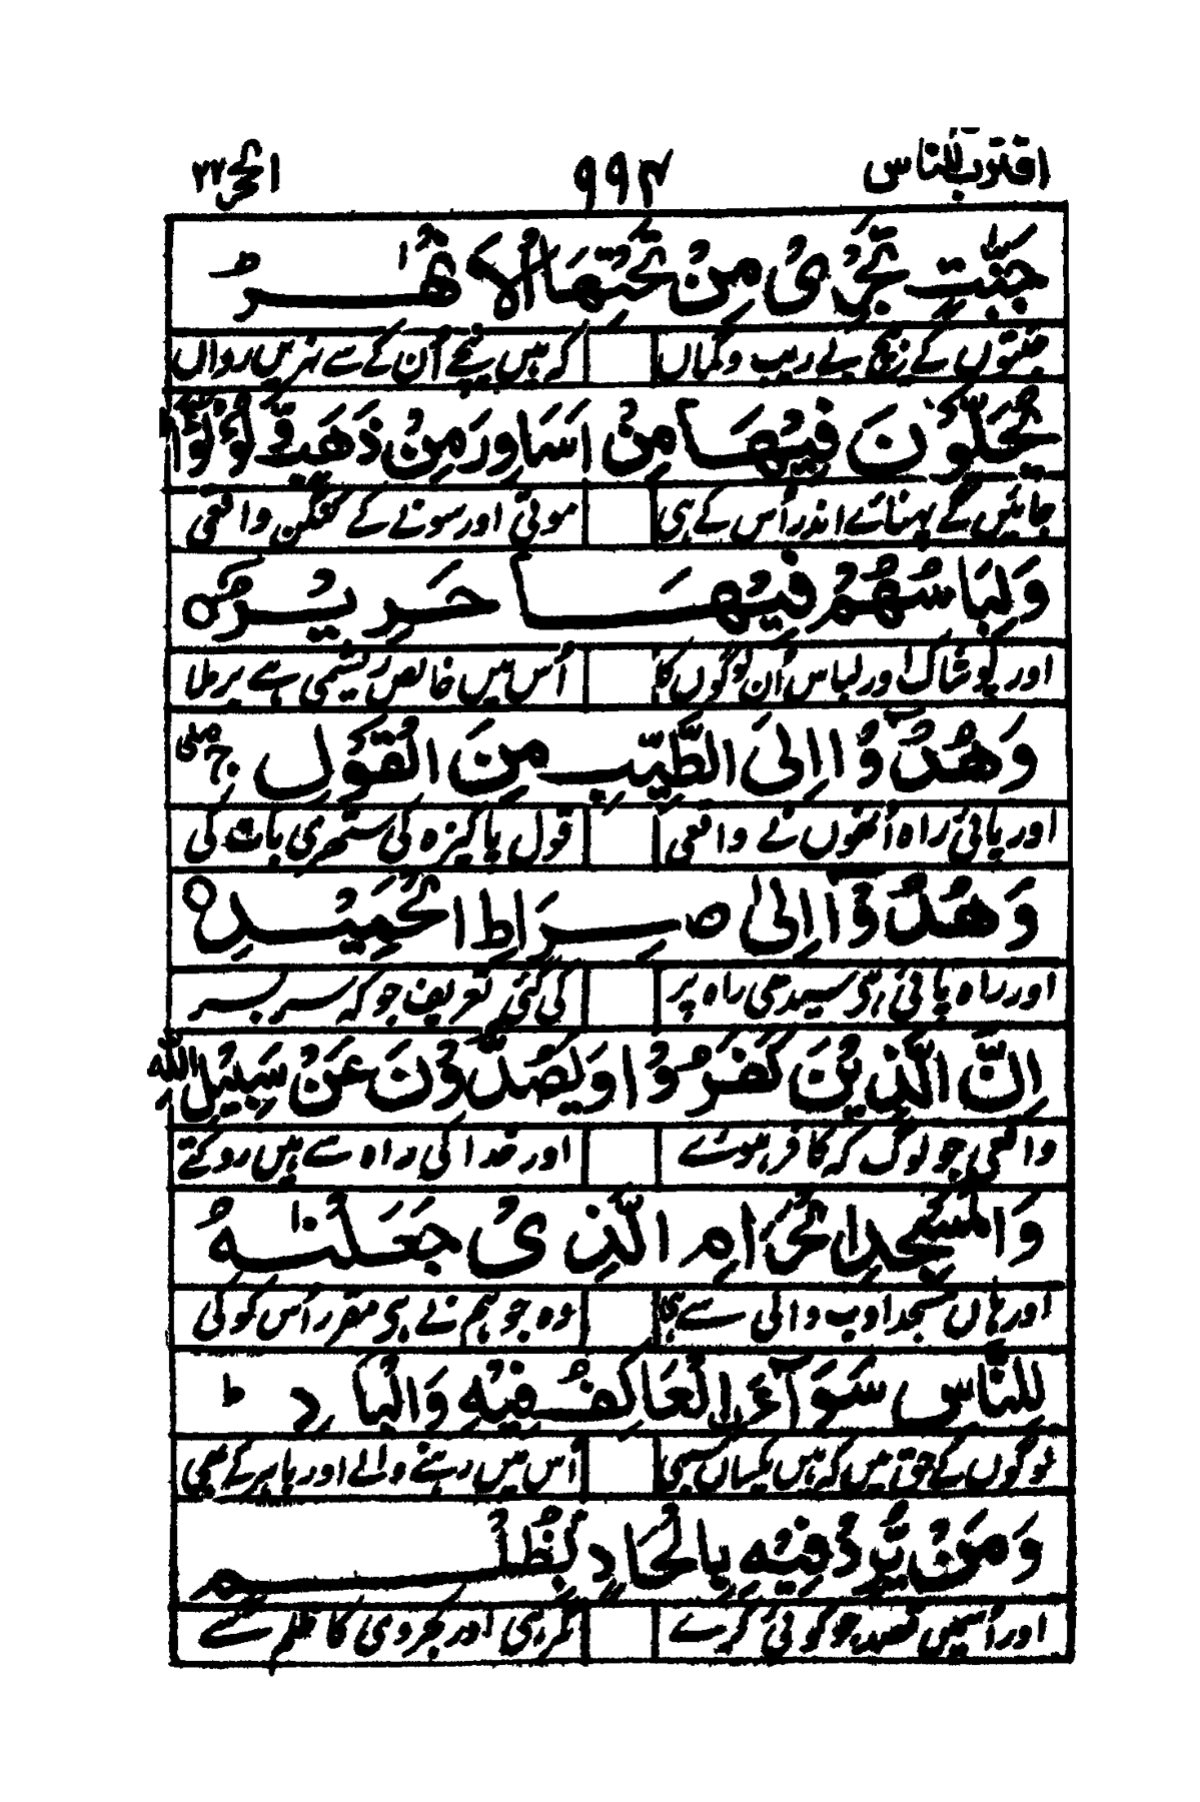 اقترب للناس ۹۹۴ الحج ۲۲
جَنّٰتٍ تَجْرِیْ مِنْ تَحْتِهَا الْاَنْهٰرُ
جنتوں کے زیچ بے ریب و گماں کہ ہیں نیچے اُن کے سے نہریں رواں
یُحَلَّوْنَ فِیْهَا مِنْ اَسَاوِرَ مِنْ ذَهَبٍ وَّلُؤْلُؤًا
جائیں گے پہنائے اندر اُس کے ہی موتی اور سونے کے کنگن واقعی
وَلِبَاسُهُمْ فِیْهَا حَرِیْرٌ ○
اور پوشاک اور لباس اُن لوگوں کا اُس میں خالص ریشمی ہے برملا
وَهُدُوْۤا اِلَی الطَّیِّبِ مِنَ الْقَوْلِ ۚ
اور پائی راہ اُنھوں نے واقعی قول پاکیزہ کی ستھری بات کی
وَهُدُوْۤا اِلٰی صِرَاطِ الْحَمِیْدِ ○
اور راہ پائی سیدھی راہ پر کی گئی تعریف جو کہ سر بسر
اِنَّ الَّذِیْنَ كَفَرُوْا وَیَصُدُّوْنَ عَنْ سَبِیْلِ اللّٰهِ
واقعی جو لوگ کہ کافر ہوئے اور خدا کی راہ سے ہیں روکتے
وَالْمَسْجِدِ الْحَرَامِ الَّذِیْ جَعَلْنٰهُ
اور ہاں مسجد ادب والی سے ہی وہ جو ہم نے ہی مقرر اُس کو کی
لِلنَّاسِ سَوَآءَ ِ۟الْعَاكِفُ فِیْهِ وَالْبَادِ ؕ
لوگوں کے حق میں کہ ہیں یکساں سبھی اُس میں رہنے والے اور باہر کے بھی
وَمَنْ یُّرِدْ فِیْهِ بِاِلْحَادٍۭ بِظُلْمٍ
اور اُسمیں قصد جو کوئی کرے گمرہی اور کجروی کا ظلم سے